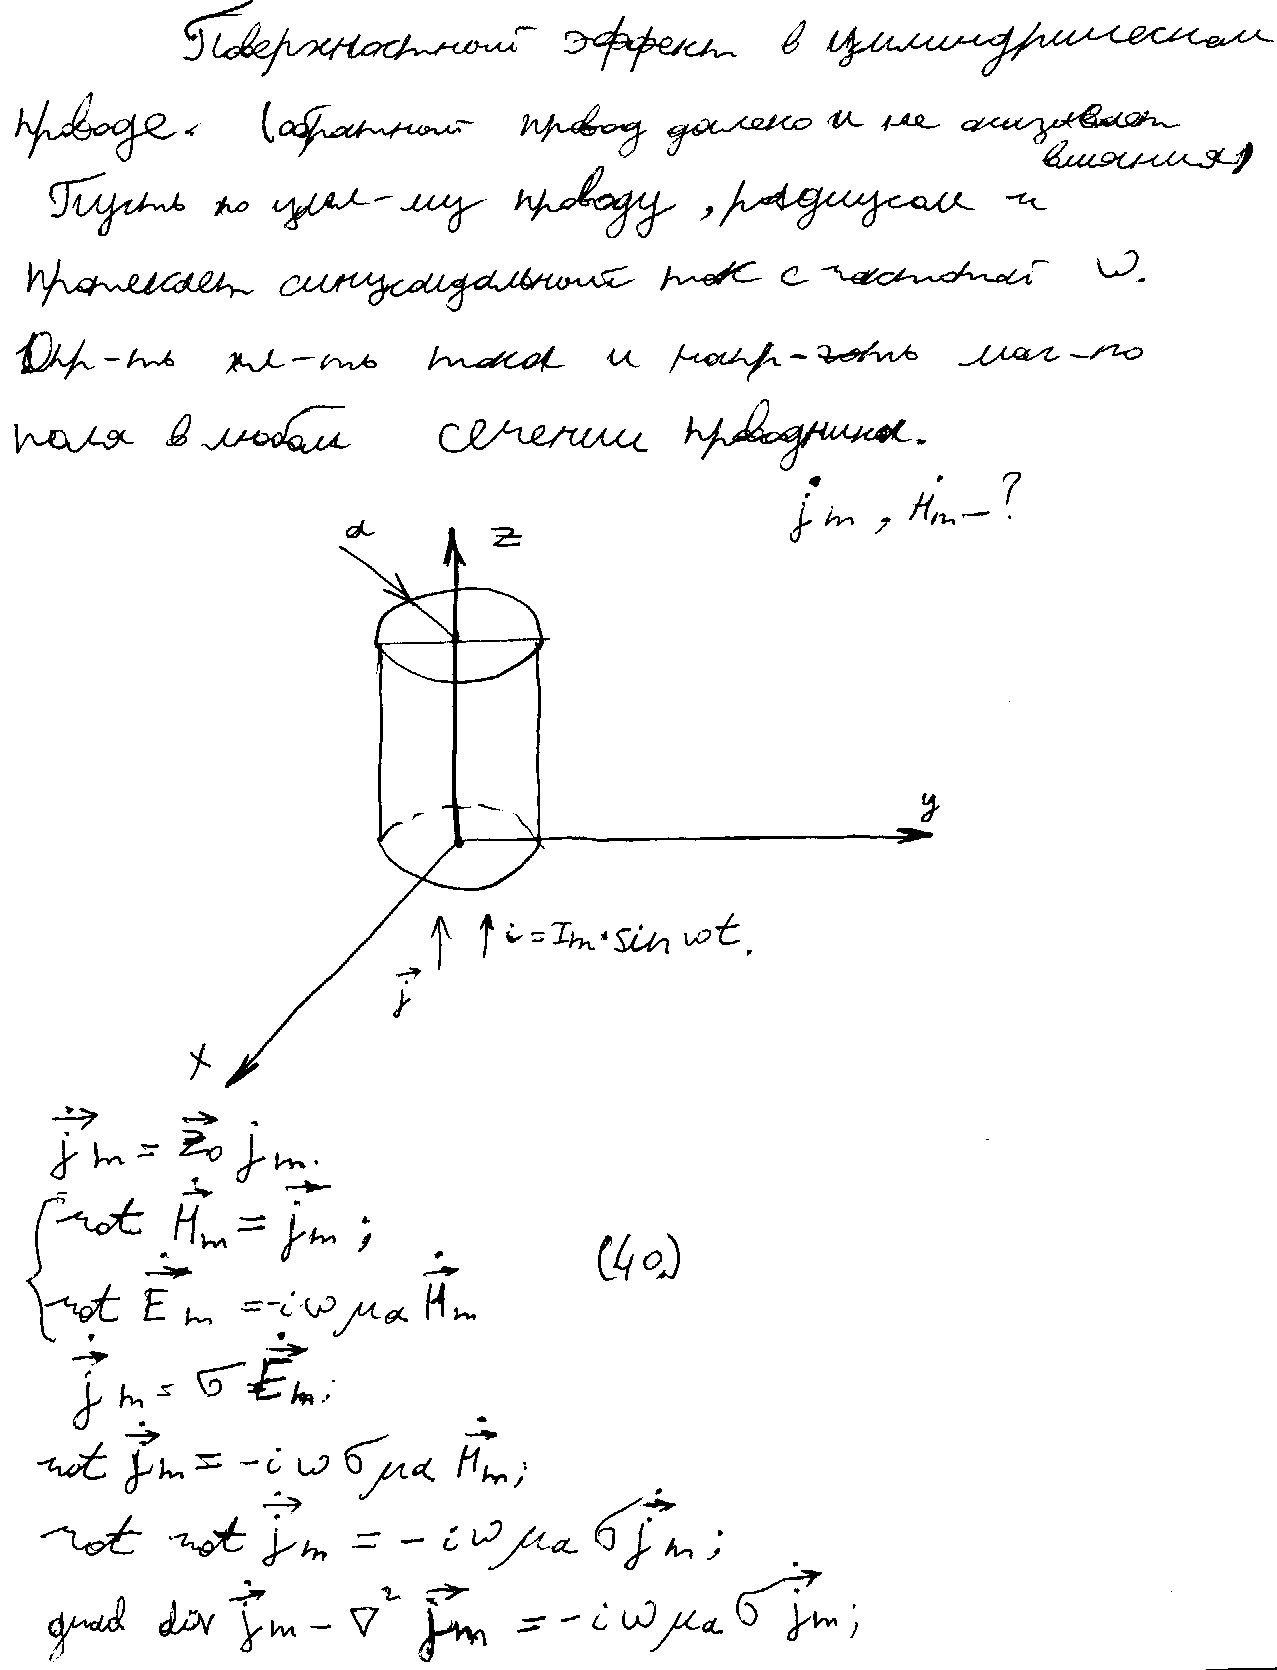 Поверхностный эффект в цилиндрическом
проводе. (обратный провод далеко и не оказывает
влияния)
Пусть по цил-му проводу, радиусом r
протекает синусоидальный ток с частотой ω.
Опр-ть пл-ть тока и напр-ть маг-го
поля в любом сечении проводника.
j̇m, Ḣm – ?
a
z
y
i = Im·sin ωt.
j⃗
x
j̇⃗m = z⃗0 j̇m.
rot Ḣ⃗m = j̇⃗m;
(40)
rot Ė⃗m = -iωμa Ḣ⃗m
j̇⃗m = σ Ė⃗m;
rot j̇⃗m = -iωσμa Ḣ⃗m;
rot rot j̇⃗m = -iωμa σ j̇⃗m;
grad div j̇⃗m - ∇² j̇⃗m = -iωμa σ j̇⃗m;